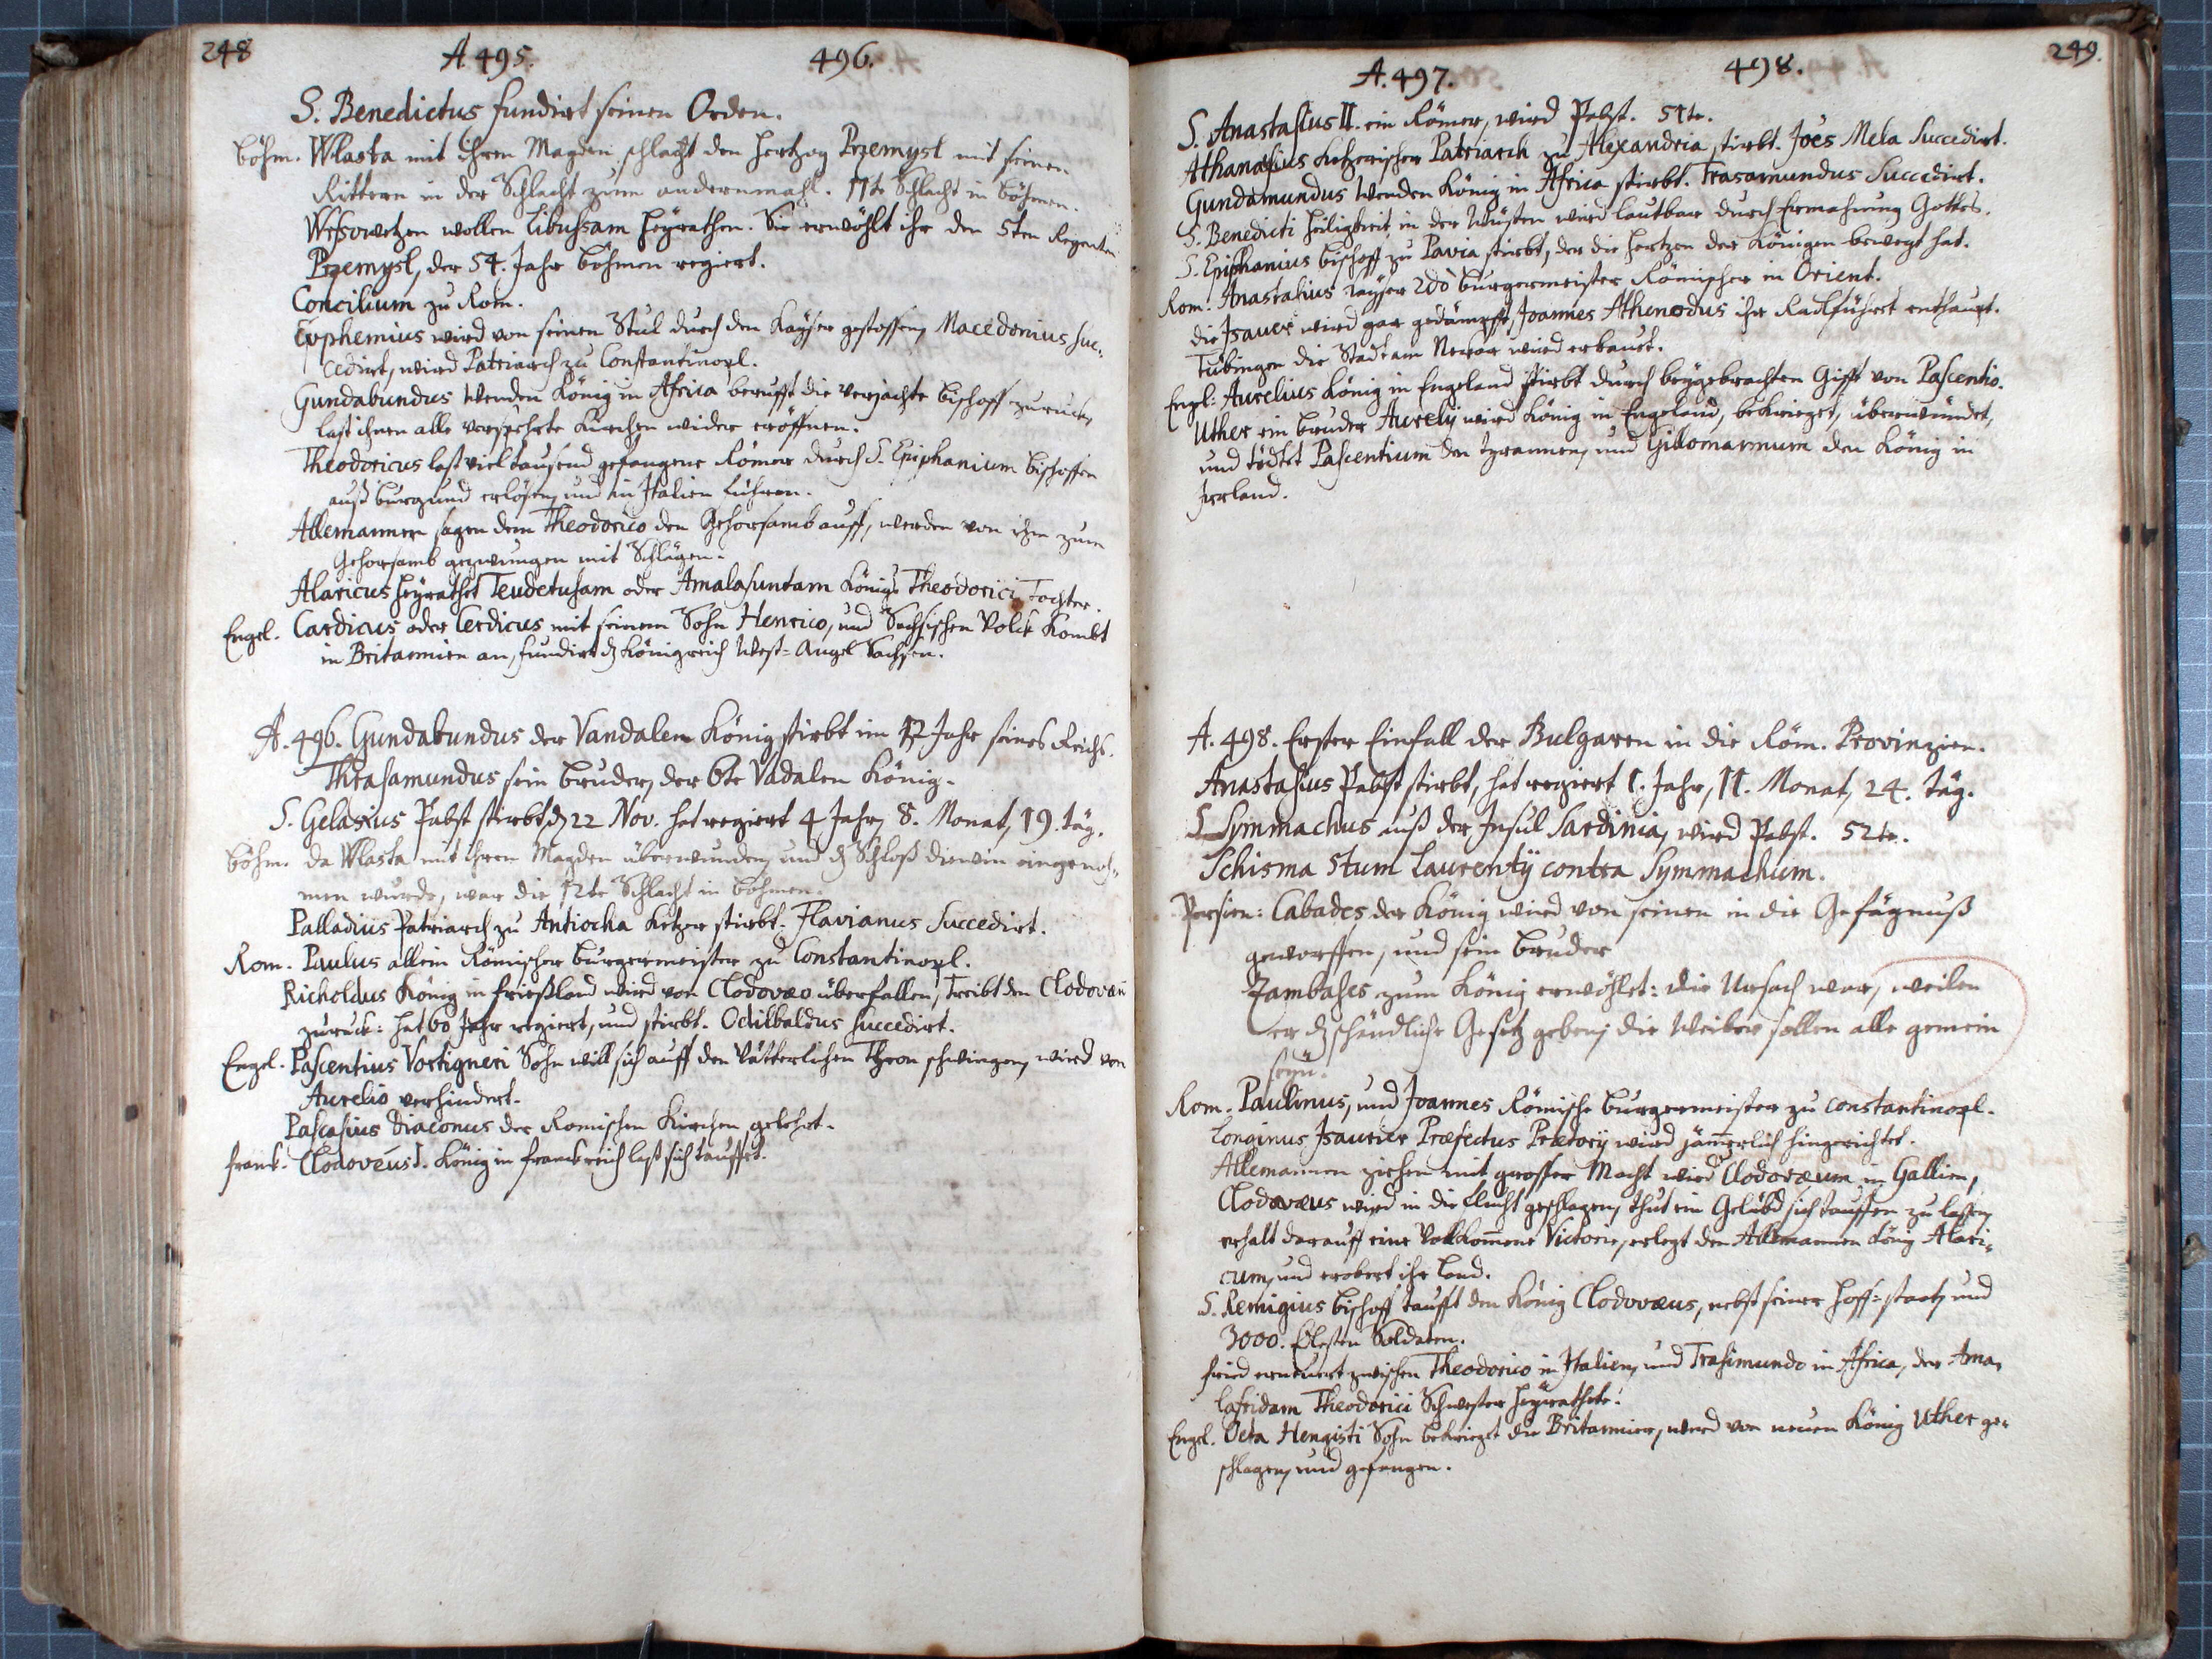 248
A. 495. 496.
S. Benedictus fundirt seinen Orden.
böhm. Wlasta mit ihren Magden schlacht den Hertzog Przemysl mit seinen
Rittern in der Schlacht zum andernmahl. 11te Schlacht in Böhmen.
Wrssowetzen wollen Libussam heyrathen. Sie erwöhlt ihr den 5ten Regenten
Przemysl, der 54. Jahr böhmen regiert.
Concilium zu Rom.
Euphemius wird von seinen Stul durch den Kayser gestossen, Macedonius suc-
cedirt, wird Patriarch zu Constantinopl.
Gundabundus Wenden König in Africa berufft die verjachte bischoff zuruck,
last ihnen alle versperte Kirchen wider eröffnen.
Theodoricus last viel tausend gefangene Römer durch S. Epiphanium bischoffen
auß burgund erlösen, und in Italien führen.
Allemanner sagen dem Theodorico den Gehorsamb auff, werden von ihm zum
Gehorsamb gezwungen mit Schlägen.
Alaricus heyrathet Teudetusam oder Amalasuntam Königs Theodorici Tochter.
Engel. Cardicus oder Cerdicus mit seinem Sohn Henrico, und Sachsischen Volck kombt
in Britannien an, fundirt dz Königreich West-Angel Sachsen.
A. 496. Gundabundus der Vandalen König stirbt im 12 Jahr seines Reichs.
Thrasamundus sein bruder, der 6te Vadalen König.
S. Gelasius Pabst stirbt, den 22 Nov. hat regiert 4 Jahr, 8. Monat, 19. täg.
böhm. da Wlasta mit ihren Magden überwunden, und dz Schloß diewin eingenoh-
men wurde, war die 12te Schlacht in böhmen.
Palladius Patriarch zu Antiocha Ketzer stirbt. Flavianus Succedirt.
Rom. Paulus allein Römischer burgermeister zu Constantinopl.
Richoldus König in frießland wird von Clodovæo überfallen, treibt den Clodovæū
zuruck: hat 60 Jahr regiert, und stirbt. Odilbaldus succedirt.
Engel. Pascentius Vortigneri Sohn will sich auff den Vätterlichen Thron schwingen, wird von
Aurelio verhindert.
Pascasius Diaconus der Romischen Kirchen gelehrt.
franck. Clodoveus I. König in franckreich last sich tauffet.
249.
A. 497. 498.
S. Anastasius II. ein Römer, wird Pabst. 51te.
Athanasius Ketzerischer Patriarch zu Alexandria stirbt. Joēs Mela Succedirt.
Gundamundus Wenden König in Africa stirbt. Trasamundus Succedirt.
S. Benedicti heiligkeit in der Wüsten wird lautbar durch Ermahnung Gottes.
S. Epiphanius bischoff zu Pavia stirbt, der die hertzen der Königen bewegt hat.
Rom. Anastasius Kayser 2dò burgermeister Römischer in Orient.
die Isauer wird gar gedämpfft, Joannes Athenodus ihr Radlführer enthaupt.
Tübingen die Stadt am Neckar wird erbauet.
Engel: Aurelius König in Engeland stirbt durch beygebrachten Gifft von Pascentio.
Uther ein bruder Aurelij wird König in Engeland, bekrieget, überwündet,
und tödtet Pascentium den tyrannen, und Gillomannum den König in
Irrland.
A. 498. Erster Einfall der Bulgaren in die Röm. Provinzien.
Anastasius Pabst stirbt, hat regiert 1. Jahr, 11. Monat, 24. täg.
S. Symmachus auß der Insul Sardinia, wird Pabst. 52te.
Schisma 5tum Laurentij contra Symmachum.
Persien: Cabades der König wird von seinen in die Gefägnuß
geworffen, und sein bruder
Zambases zum König erwöhlet: die Ursach war, weilen
er dz schändliche Gesetz geben, die Weiber sollen alle gemein
seyn.
Rom. Paulinus, und Joannes Römische burgermeister zu constantinopl.
Longinus Isaurier Præfectus Prætorij wird jämerlich hingerichtet.
Allemannen ziehen mit grosser Macht wird Clodovæum in Gallien,
Clodovæus wird in die flucht geschlagen, thut ein Gelübd sich tauffen zu lassen,
erhalt darauff eine Vollkomene Victorie, erlegt den Allemannen König Alari-
cum, und erobert ihr land.
S. Remigius bischoff taufft den König Clodovæus, nebst seiner hoff-staat, und
3000. Soldaten.
frid erneuert zwischen Theodorico in Italien, und Trasimundo in Africa, der Ama-
lafridam Theodorici Schwester heyrathete.
Engel. Octa Hengisti Sohn bekrieget die Britannier, wird von neuen König Uther ge-
schlagen, und gefangen.